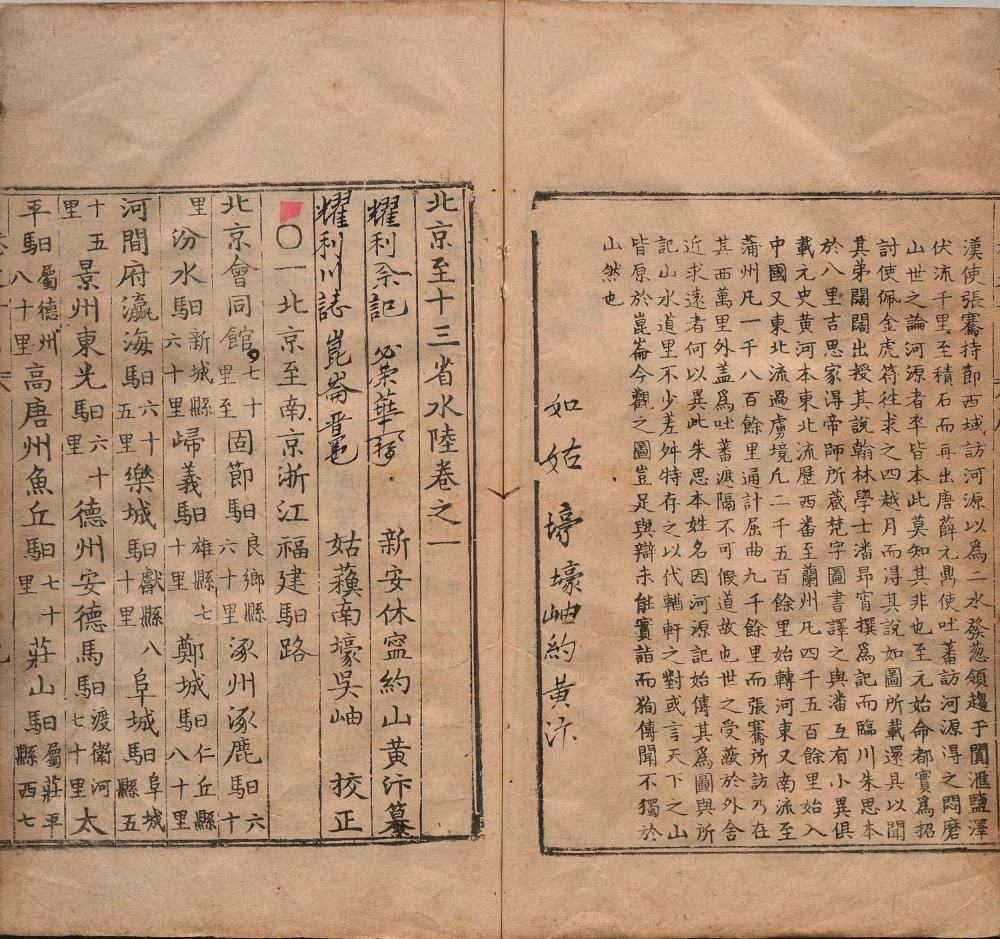 漢使張騫持節西域訪河源以爲二水發葱領趨于闐滙鹽澤
伏流千里至積石而再出唐薛元鼎使吐蕃訪河源得之悶磨
山世之論河源者卒皆本此莫知其非也至元始命都實爲招
討使佩金虎符徃求之四越月而得其說如圖所載還具以聞
其弟闊闊出授其說翰林學士潘昻霄撰爲記而臨川朱思本
於八里吉思家得帝師所蔵梵字圖書譯之與潘互有小異俱
載元史黃河本東北流歷西畨至蘭州凡四千五百餘里始入
中國又東北流過虜境凢二千五百餘里始轉河東又南流至
蒲州凡一千八百餘里通計屈曲九千餘里而張騫所訪乃在
其西萬里外盖爲吐蕃遮隔不可假道故也世之受蔽於外舍
近求遠者何以異此朱思本姓名因河源記始傳其爲圖與所
記山水道里不少差舛特存之以代輶軒之對或言天下之山
皆原於崑崙今觀之圖豈足與辯未能實詣而狥傳聞不獨於
山然也
如 姑 壕 壕岫約黃汴
北京至十三省水陸卷之一
耀利 記 新安休寧約山黃汴纂
耀利川誌崑崙 姑蘓南壕吳岫 校正
〇一北京至南京浙江福建馹路
北京會同館七十里至固節馹良鄉縣六十里涿州涿鹿馹六十
里汾水馹新城縣六十里歸義馹雄縣七十里鄭城馹仁丘縣八十里
河間府瀛海馹六十五里樂城馹獻縣八十里阜城馹阜城縣五
十五里景州東光馹六十里德州安德馬馹渡衛河七十里太
平馹屬德州八十里高唐州魚丘馹七十里茌山馹屬茌平縣西七